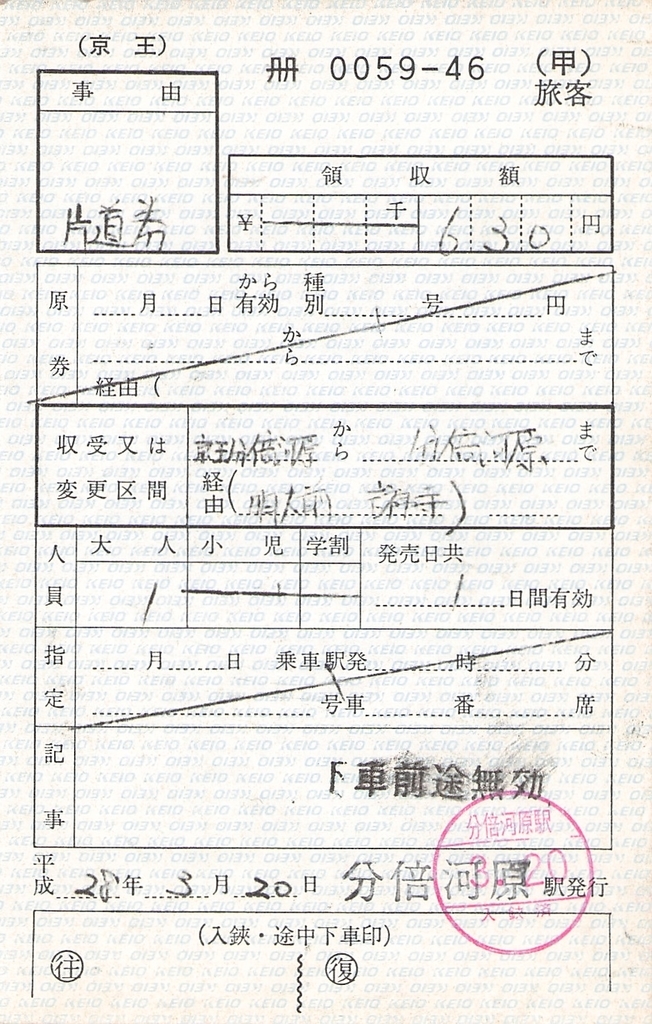 (京王)
冊 0059-46
(甲)
旅客
事由
片道券
領収額
¥ 千 630円
原券
月 日から有効 種別 号 円
から まで
経由(
収受又は変更区間
京王分倍河原から 分倍河原まで
経由(明大前 吉祥寺)
人員
大人 小児 学割 発売日共
1 1日間有効
指定
月 日 乗車駅発 時 分
号車 番 席
記事
下車前途無効
分倍河原駅
3.-20
入鋏済
平成28年3月20日 分倍河原駅発行
(入鋏・途中下車印)
往 復